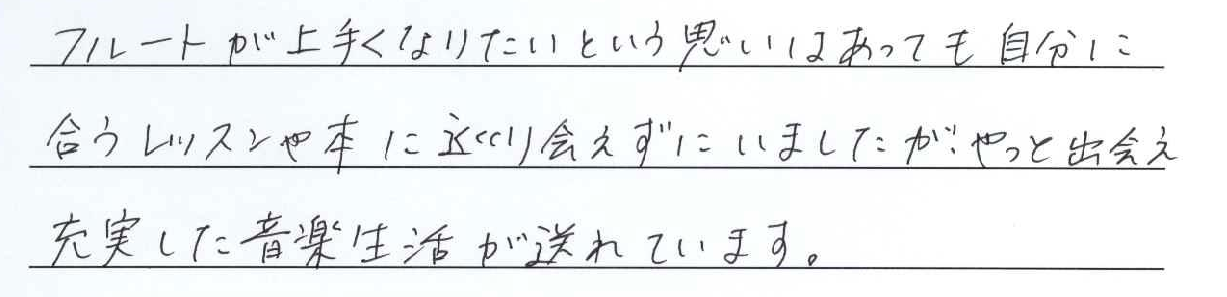 フルートが上手くなりたいという思いはあっても自分に
合うレッスンや本に巡り会えずにいましたが、やっと出会え
充実した音楽生活が送れています。